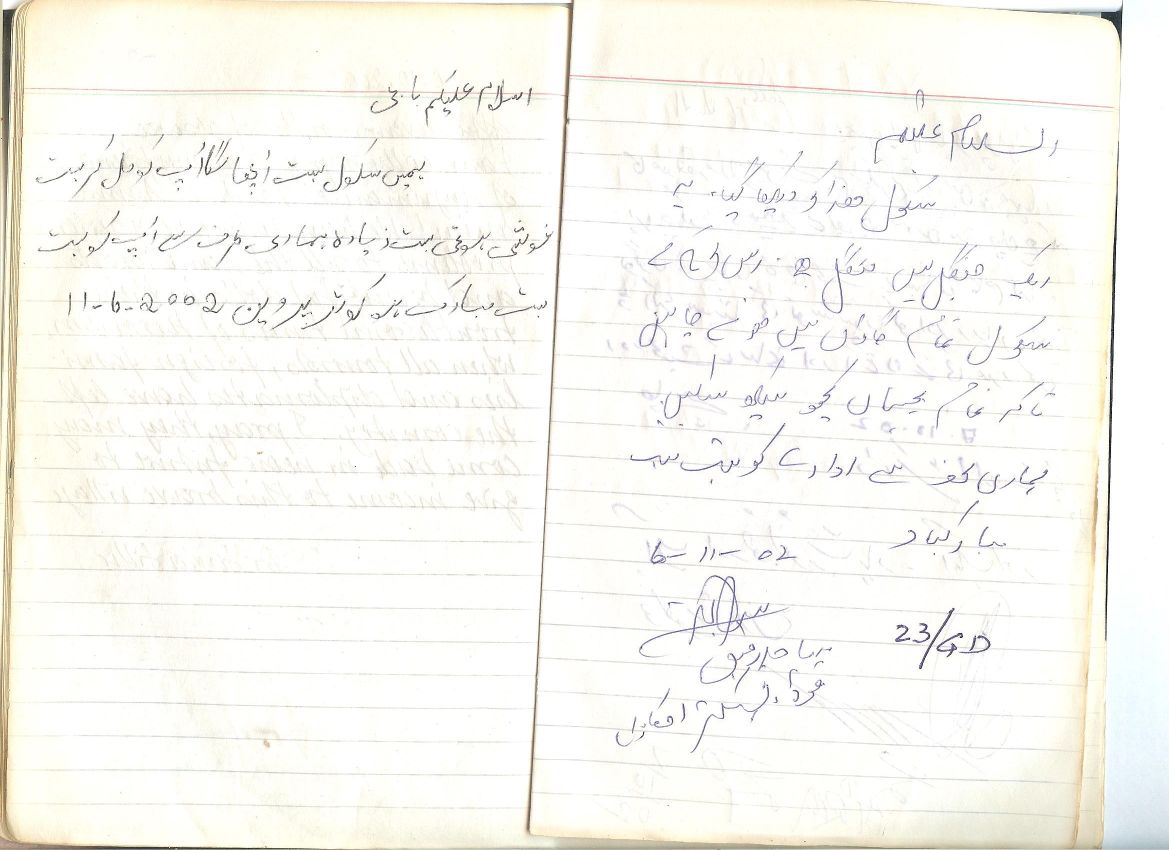 اسلام علیکم باجی
ہمیں سکول بہت اچھا لگا آپ کو مل کر بہت
خوشی ہوئی بہت زیادہ ہماری طرف سے آپ کو بہت
بہت مبارک ہو کوثر پروین 11-6-2002
السلام علیکم
سکول ھذا کو دیکھا گیا۔ یہ
ایک جنگل میں منگل ہے۔ اس
سکول تمام گاؤں میں ہونے چاہیں
تاکہ تمام بچیاں کچھ سیکھ سکیں۔
ہماری طرف سے ادارے کو بہت بہت
مبارکباد
6-11-02
23/GD